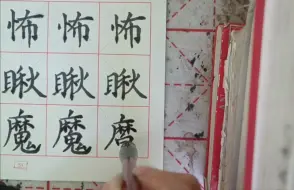 怖 怖 怖
瞅 瞅 瞅
魔 魔